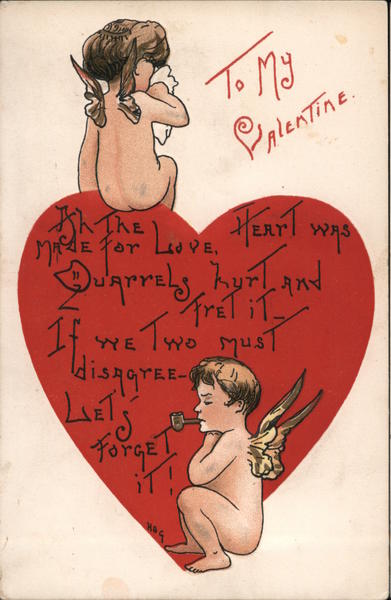 To My
Valentine.
Ah the Heart was
made for Love,
Quarrels hurt and
fret it—
If we two must
disagree—
Let's
forget
it!
HBG